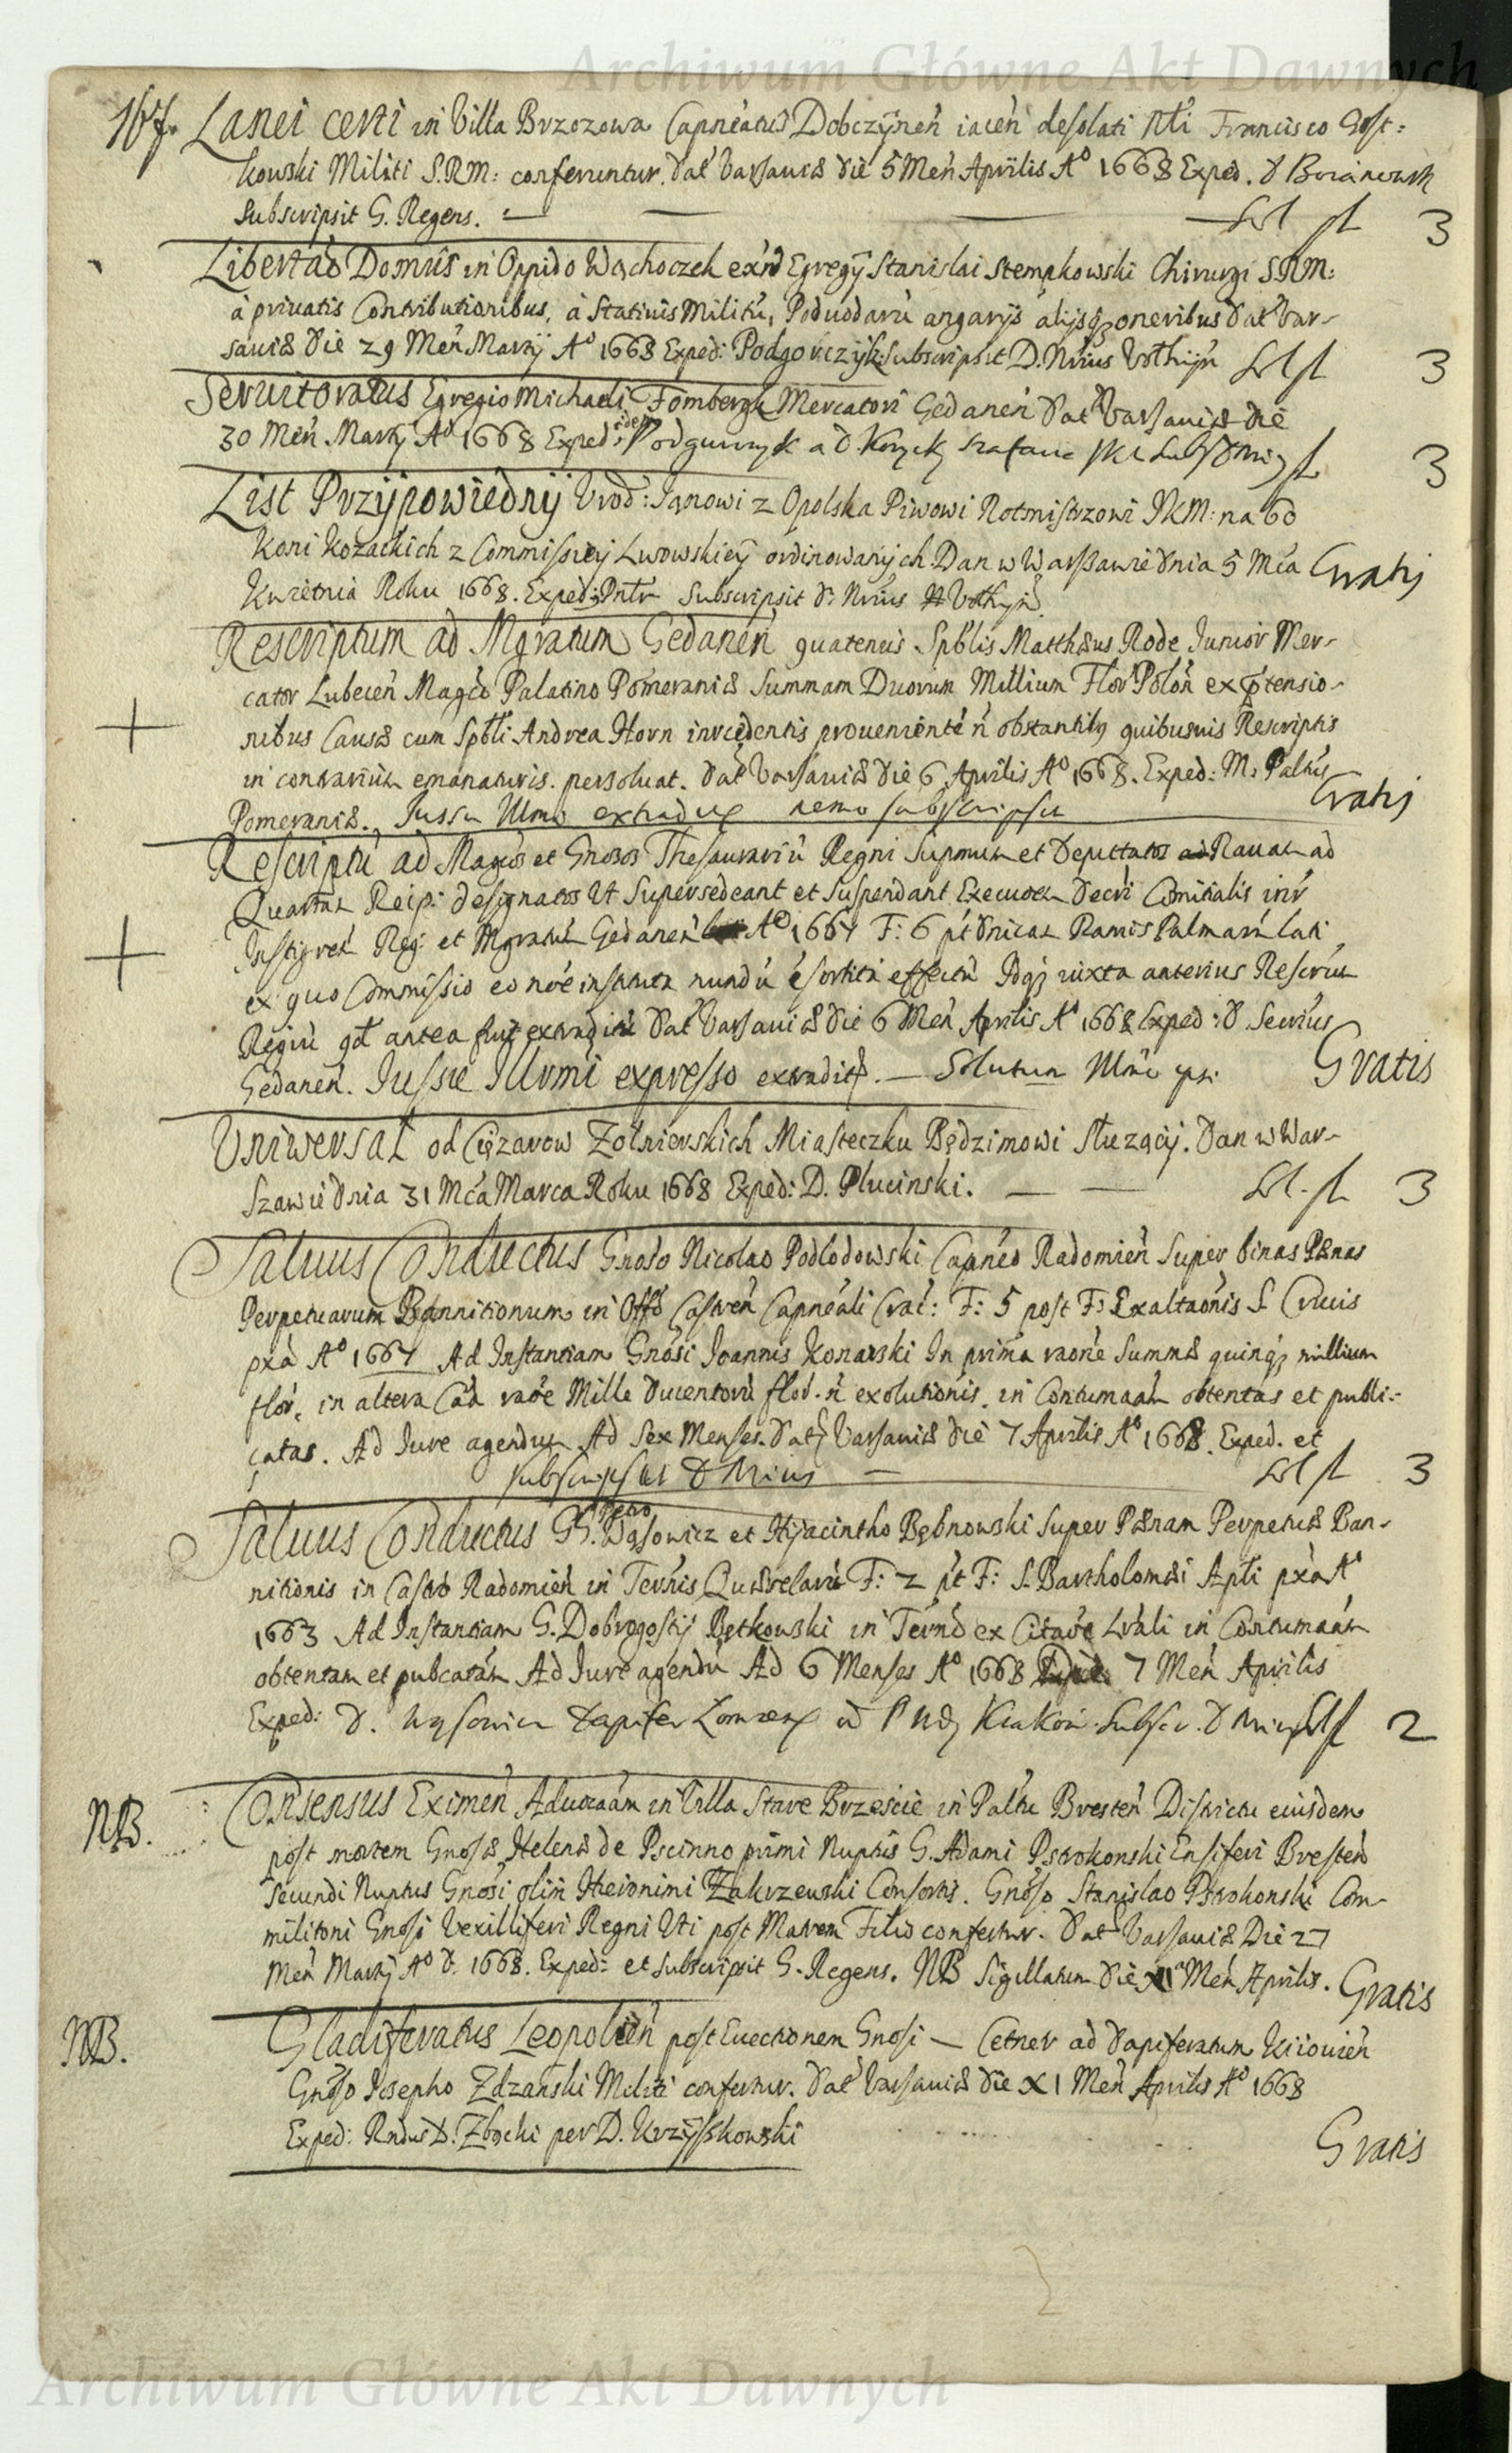 Archiwum Główne Akt Dawnych
167. Lanei certi in Villa Brzozowa Capneatus Dobczÿnen iacen desolati Nli Francisco Gost:
kowski Militi S.R.M: conferuntur. Dat Varsauiæ die 5 Men Aprilis A° 1668 Exped. D
Subscripsit G. Regens. — — — Sol fl 3
Libertao Domus in Oppido Wąchoczek Egregÿ Stanislai Stempkowski Chirurgi S.R.M:
à priuatis Contributionibus, à Statiuis Militũ, Poduodarũ angarÿs alijsq; oneribus Dat Var-
sauiæ die 29 Men Martÿ A° 1668 Exped: Podgorczÿk: Subscripsit D. Nrius Vothijn Sol fl 3
Seruitoratus Egregio Michaeli Fombergk Mercatori Gedanen Dat Varsauiæ die
30 Men Martÿ A° 1668 Exped: idem Podgurczyk a D. fl 3
List Przÿpowiednÿ Vrod: Janowi z Opolska Piwowi Rotmistrzowi JKM: na 60
Koni Kozackich z Commissiey Lwowskieÿ ordinowanÿch. Dan w Warszawie dnia 5 Mca Gratis
Kwietnia Roku 1668. Exped: Subscripsit D: Nrius Vothyn
Rescriptum ad Mgratum Gedanen quatenus Spblis Matthæus Rode Junior Mer-
cator Lubecen Magco Palatino Pomeraniæ Summam Duorum Millium Flor Polon ex ptensio-
nibus Causæ cum Spbli Andrea Horn intcedentis prouenientē ñ obstantibq quibusuis Rescriptis
in contrarium emanaturis. persoluat. Dat Varsauiæ die 6 Aprilis A° 1668. Exped: M: Paltus
Pomeraniæ. Jussu Illmo extradux nemo subscripsit Gratis
Rescriptũ ad Magcos et Gnosos Thesaurariũ Regni Supmum et Deputatos Rauam ad
Quartam Reip: designatos Ut Supersedeant et Suspendant Execuoem Decri Comitialis intr
Instigrem Reg: et Mgratum Gedanen A° 1667 F: 6 pt Dnicam Ramis Palmarũ lati
ex quo Commissio eo noie instituta nundũ ẽ sortita effectũ Idq; iuxta anterius Rescrtum
Regiũ qd antea fuit extraditũ Dat Varsauiæ die 6 Men Aprilis A° 1668 Exped: D Secrius
Gedanen. Jussu Illrmi expresso extraditq. — Solutum Gratis
Uniwersał od Ciężarow Żołnierskich Miasteczku Będzimowi Słuzącÿ. Dan w War-
szawie dnia 31 Mca Marca Roku 1668 Exped: D. Plucinski. — — Sol. fl. 3
Saluus Conductus Gnoso Nicolao Podlodowski Capneo Radomien Super binas Pænas
Perpetuarum Bannitionum in Offo Castren Capneali Crac: F: 5 post F: Exaltaonis S. Crucis
pxa A° 1667 Ad Instantiam Gnosi Joannis Konarski In prima raone Summæ quinq; millium
flor, in altera raoe Mille Ducentorũ flor. ñ exolutionis in Contumaam obtentas et publi:-
catas. Ad Jure agendum Ad Sex Menses. Dat Varsauiæ die 7 Aprilis A° 1668. Exped. et
subscripsit D Nrius — Sol fl 3
Saluus Conductus G. Petro Wąsowicz et Hÿacintho Bębnowski Super Pænam Perpetuæ Ban-
nitionis in Castro Radomien in Termis Quærelarũ F: 2 pt F: S. Bartholomæi Apli pxa A°
1663 Ad Instantiam G. Dobrogostÿ Bętkowski in Term ex Citaoe Lrali in Contumaam
obtentam et pubcatam Ad Jure agendũ Ad 6 Menses A° 1668 7 Men Aprilis
Exped: D. Wąsowicz Dapifer Krakow. Subscr. D Nrius Sol fl 2
NB. Consensus Eximen Aduocaam in Villa Stare Brzescie in Paltu Bresten Districtu eiusdem
post mortem Gnosæ Helenæ de Pscinno primi Nuptis G. Adami Pstrokonski Ensiferi Bresten
Secundi Nuptus Gnosi olim Hieronimi Zakrzewski Consortis. Gnoso Stanislao Pstrokonski Com-
militoni Gnosi Vexilliferi Regni Uti post Matrem Filio confertur. Dat Varsauiæ Die 27
Men Martÿ A° D. 1668. Exped: et subscripsit G. Regens. NB Sigillatum die XI Men Aprilis. Gratis
NB. Gladiferatus Leopolien post Euectionem Gnosi — Cetner ad Dapiferatum Kiiouien
Gnoso Josepho Zdzanski Militi confertur. Dat Varsauiæ die XI Men Aprilis A° 1668
Exped: Rndus D. Zbąski per D. Krzÿszkowski Gratis
Archiwum Główne Akt Dawnych